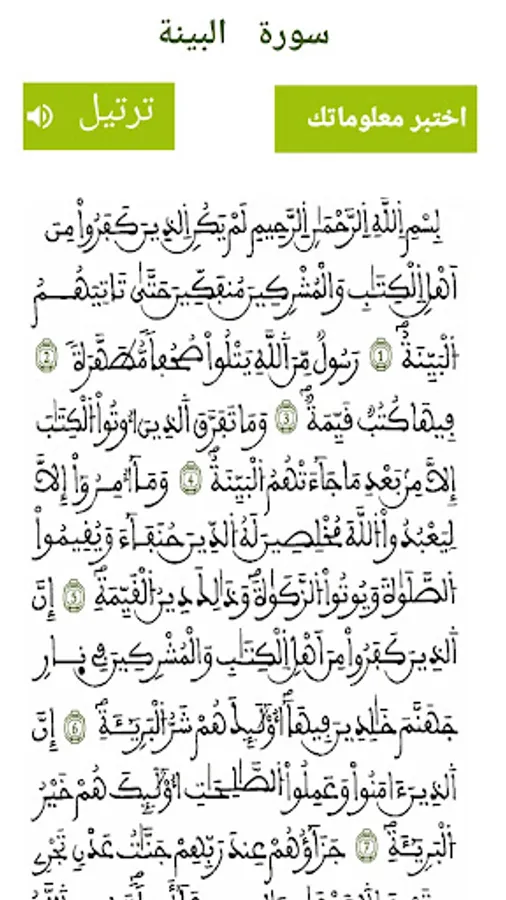 سورة البينة
اختبر معلوماتك
ترتيل
بِسْمِ اِ۬للَّهِ اِ۬لرَّحْمَٰنِ اِ۬لرَّحِيمِ لَمْ يَكُنِ اِ۬لذِينَ كَفَرُواْ مِنَ
اَهْلِ اِ۬لْكِتَٰبِ وَالْمُشْرِكِينَ مُنفَكِّينَ حَتَّىٰ تَاتِيَهُمُ
اُ۬لْبَيِّنَةُ 1 رَسُولٌ مِّنَ اَ۬للَّهِ يَتْلُواْ صُحُفاٗ مُّطَهَّرَةٗ 2
فِيهَا كُتُبٌ قَيِّمَةٌ 3 وَمَا تَفَرَّقَ اَ۬لذِينَ أُوتُواْ اُ۬لْكِتَٰبَ
إِلَّا مِنۢ بَعْدِ مَا جَآءَتْهُمُ اُ۬لْبَيِّنَةُ 4 وَمَآ أُمِرُوٓاْ إِلَّا
لِيَعْبُدُواْ اُ۬للَّهَ مُخْلِصِينَ لَهُ اُ۬لدِّينَ حُنَفَآءَ وَيُقِيمُواْ
اُ۬لصَّلَوٰةَ وَيُوتُواْ اُ۬لزَّكَوٰةَ وَذَٰلِكَ دِينُ اُ۬لْقَيِّمَةِ 5 إِنَّ
اَ۬لذِينَ كَفَرُواْ مِنَ اَهْلِ اِ۬لْكِتَٰبِ وَالْمُشْرِكِينَ فِے نِارِ
جَهَنَّمَ خَٰلِدِينَ فِيهَآ أُوْلَٰٓئِكَ هُمْ شَرُّ اُ۬لْبَرِيٓـَٔةِ 6 إِنَّ
اَ۬لذِينَ ءَامَنُواْ وَعَمِلُواْ اُ۬لصَّٰلِحَٰتِ أُوْلَٰٓئِكَ هُمْ خَيْرُ
اُ۬لْبَرِيٓـَٔةِ 7 جَزَآؤُهُمْ عِندَ رَبِّهِمْ جَنَّٰتُ عَدْنٖ تَجْرِے